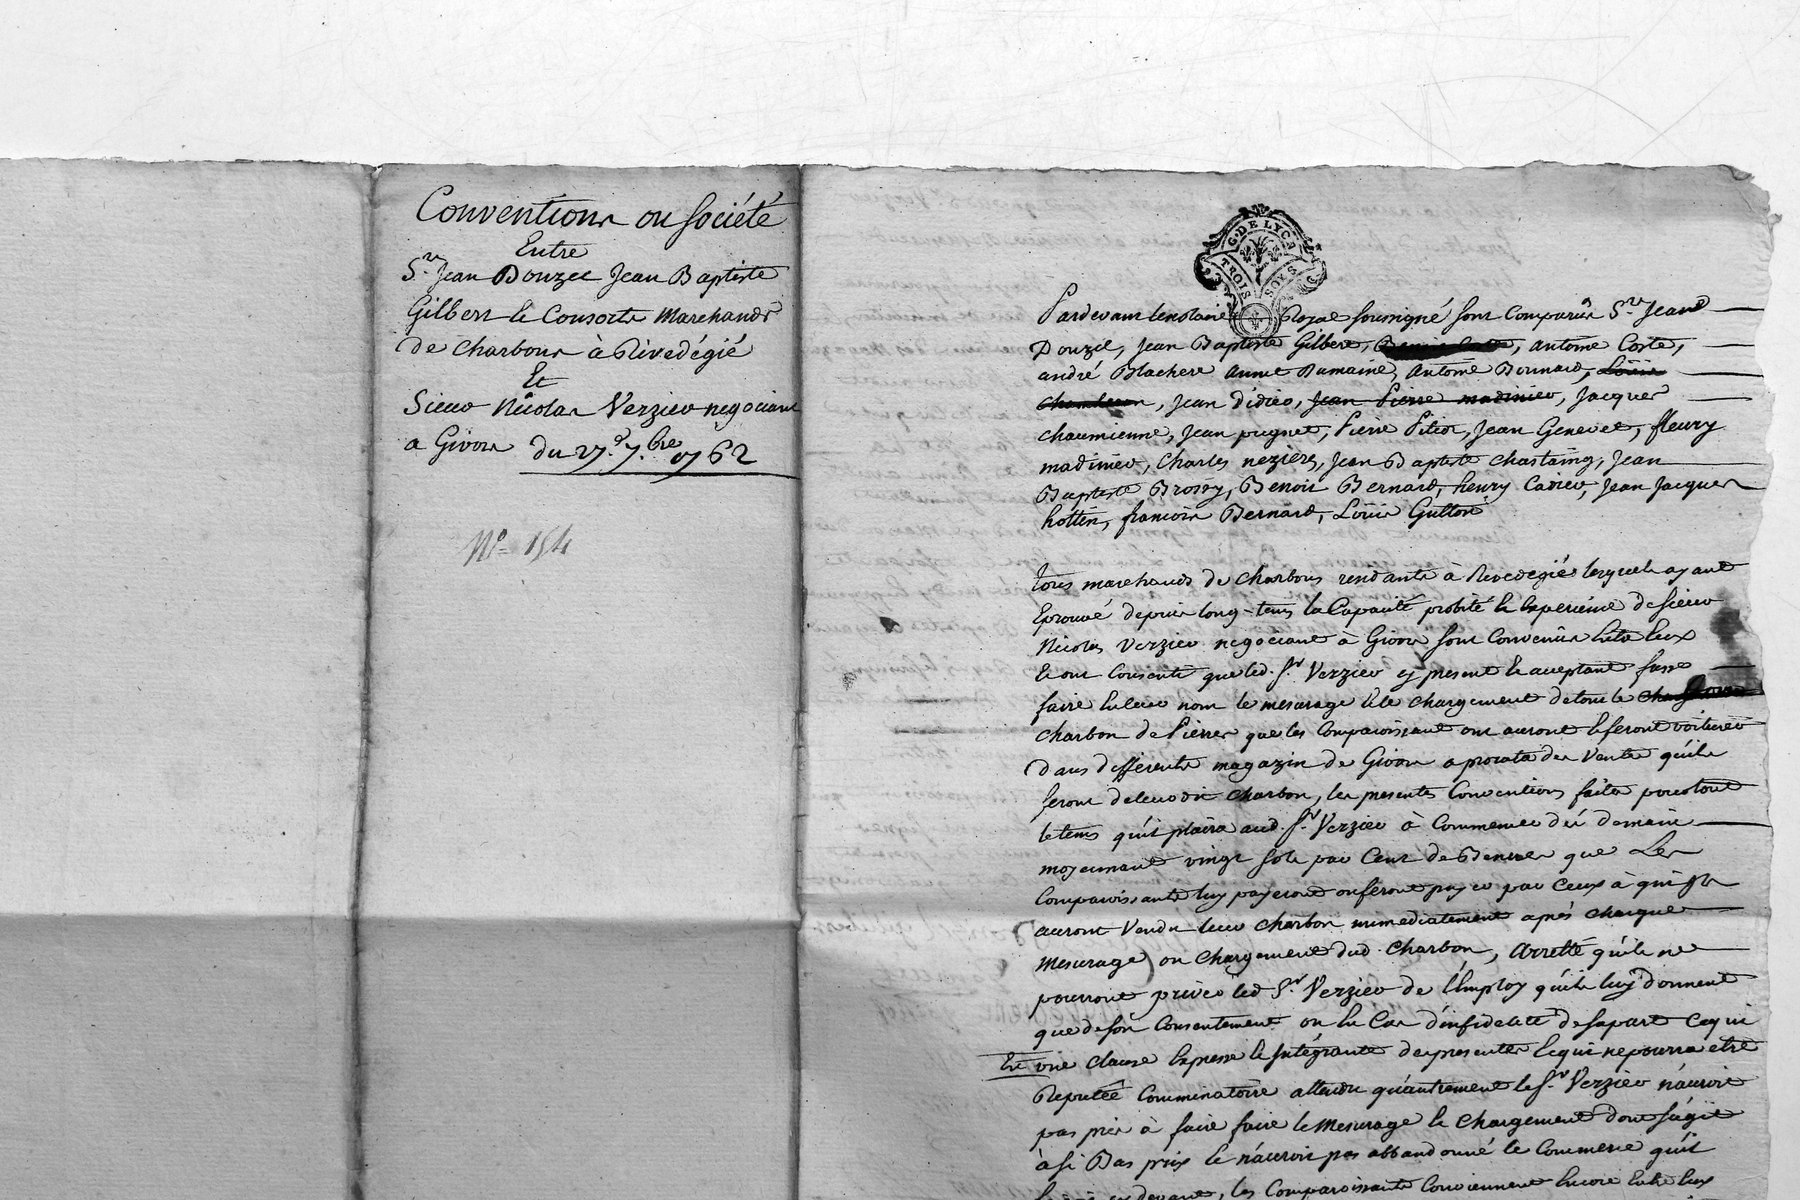 Conventions ou Société
Entre
Srs Jean Douzel Jean Baptiste
Gilbert et Consorts Marchands
de Charbons à Rivedégié
Et
Sieur Nicolas Verzieu negociant
a Givors du 27.e 7.bre 1762
No 154
G. DE LYON
TROIS SOUS
Pardevant le notaire Royal soussigné sont Comparûs Srs Jean
Douzel, Jean Baptiste Gilbert, antoine Coste,
andré Blachere anne Dumaine, Antoine Bonnard, Loüis
, Jean didier, Jean Pierre madinier, Jacques
chaumienne, Jean pugnet, Pierre Pitiot, Jean Genevet, fleury
madinier, Charles nezieres, Jean Baptiste Chastaing, Jean
Baptiste Brossy, Benoit Bernard, henry Carier, Jean Jacques
hottin, francois Bernard, Loüis Gutton
tous marchands de Charbons residants à Rivedegié lesquels ayant
Eprouvé depuis long-tems la Capacité probité et Experience de Sieur
Nicolas Verzieu negociant à Givors sont Convenûs Entr'Eux
Et ont Consenti que led. Sr Verzieu cy present et aceptant fasse
faire En leur nom le mesurage et le chargement de tout le
Charbon de Pierres que les Comparoissant ont auront et feront voiturer
dans differents magazin de Givors a prorata des Ventes qu'ils
feront de leurdit Charbon, les presentes Conventions faites pour tout
le tems qu'il plaira aud. Sr Verzieu à Commencer dès demain
moyennant vingt sols par Cent de Bennes que Les
Comparoissants luy payeront ou feront payer par Ceux à qui ils
auront Vendu leur charbon immediatement après chaque
Mesurage ou chargement dud. Charbon, Arretté qu'ils ne
pourront priver led Sr Verzieu de l'Employ qu'ils luy donnent
que de son Consentement ou En Cas d'infidelité de sa part Ce qui
Est une clause Expresse et Intégrante des presentes Et qui ne pourra etre
Reputée Comminatoire attendu qu'autrement le Sr Verzieu n'auroit
pas pris à faire faire le Mesurage et Chargement dont s'agit
à si Bas prix et n'auroit pas abbandonné le Commerce qu'il
cy devant, les Comparoissants Conviennent Encore Entr'Eux